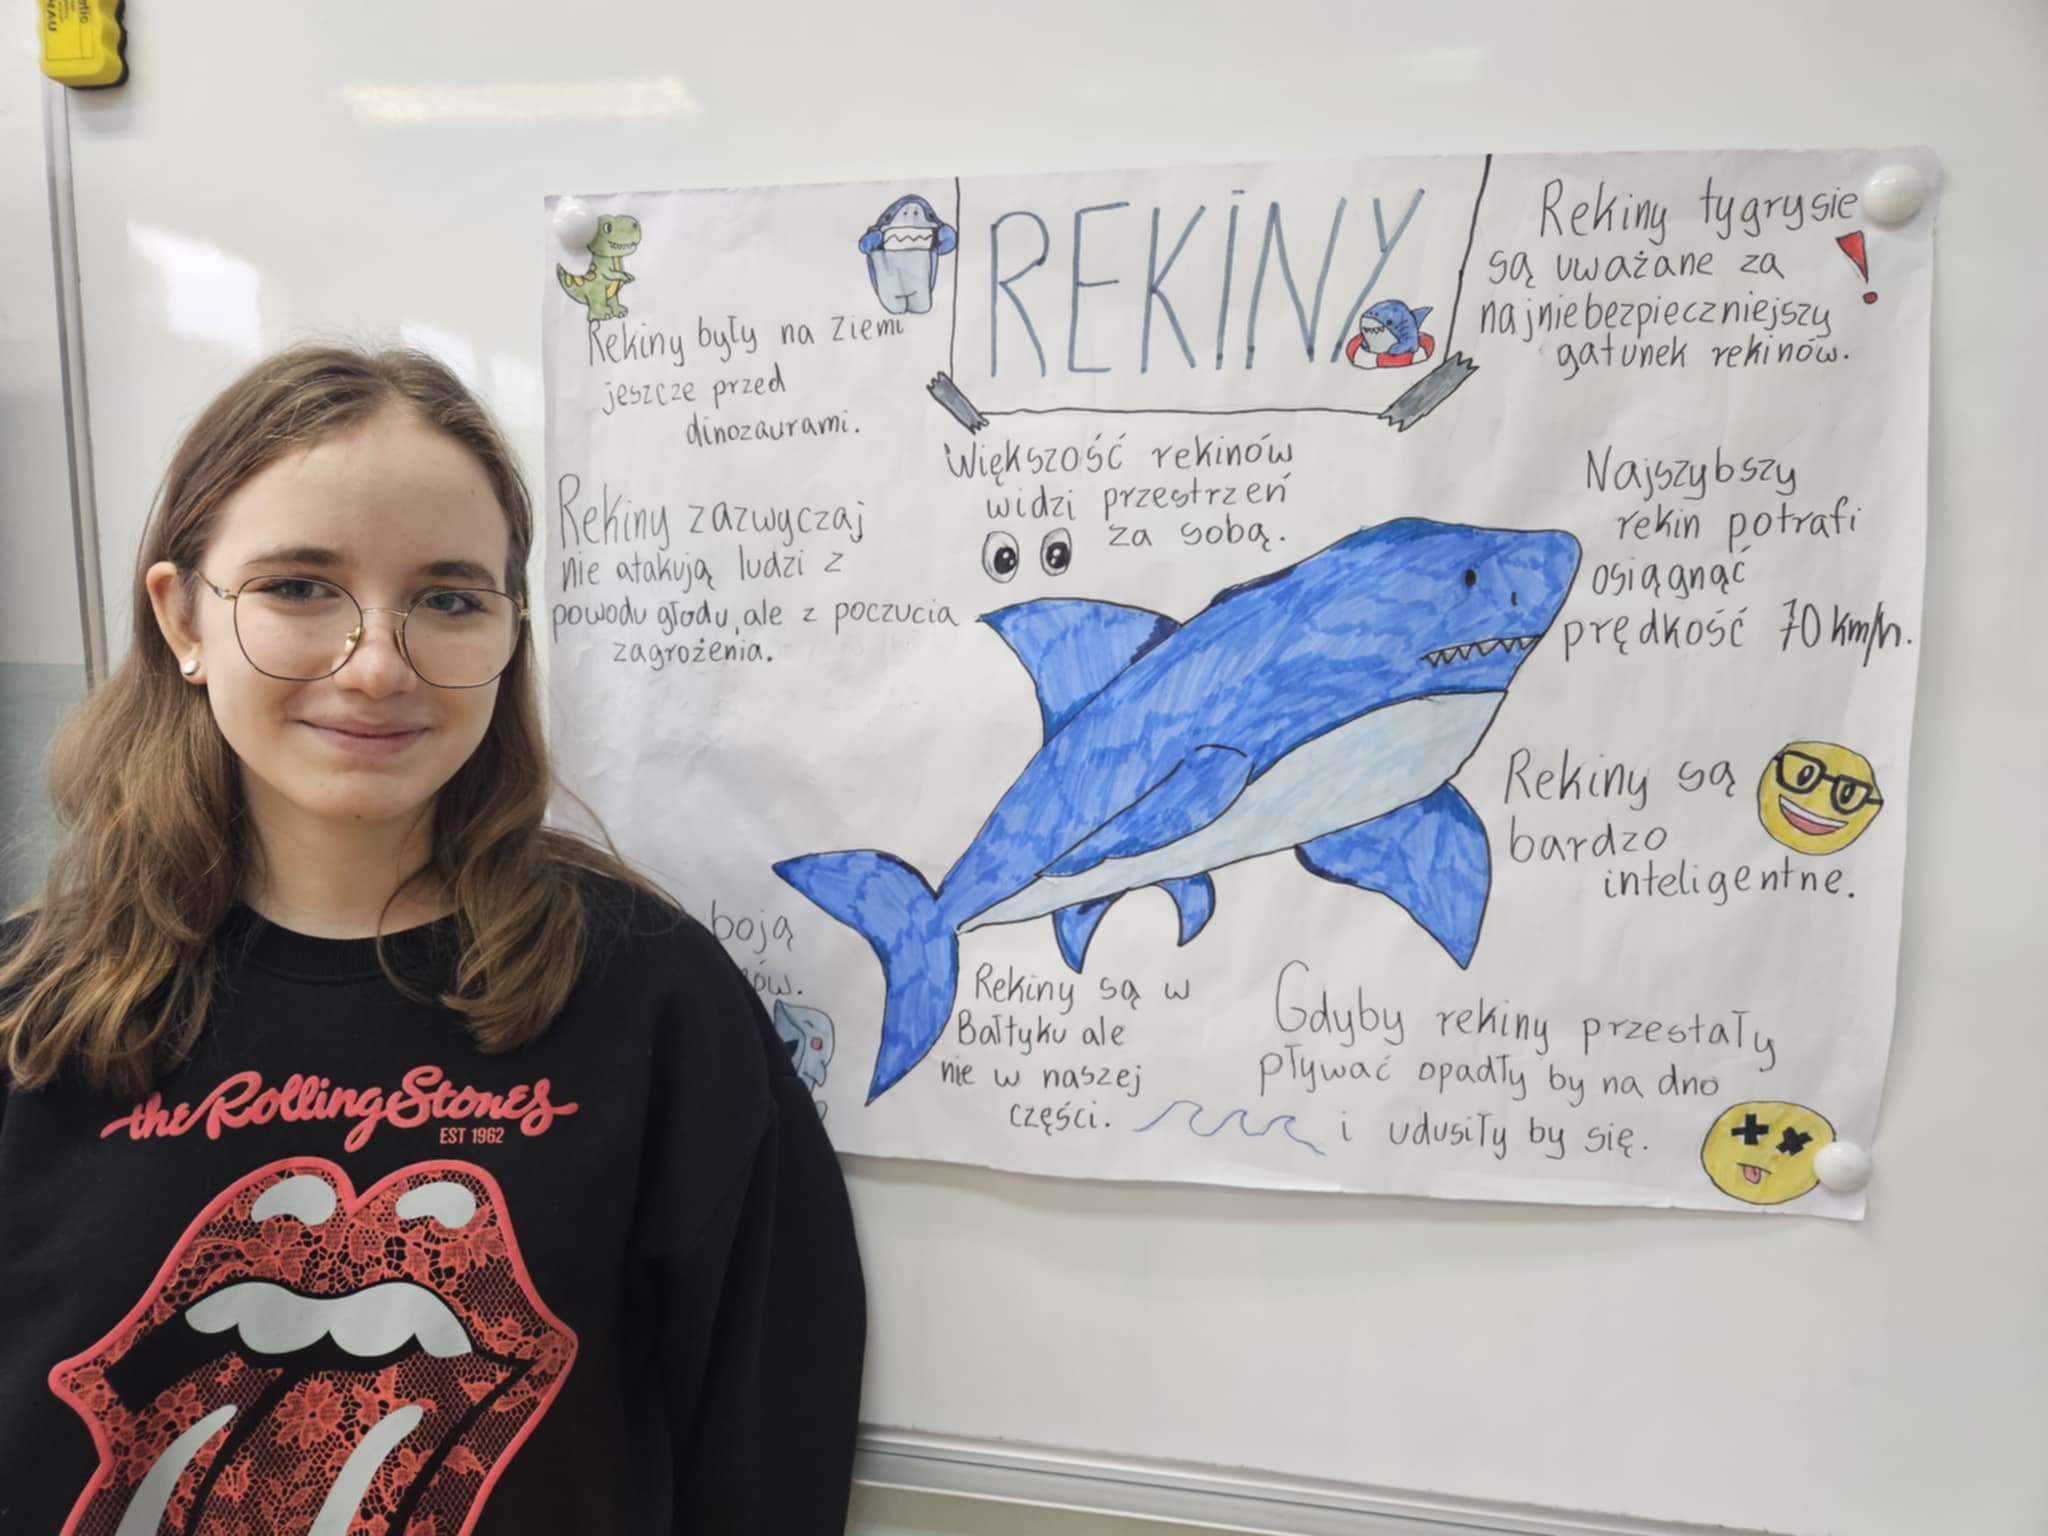 REKINY
Rekiny były na Ziemi
jeszcze przed
dinozaurami.
Rekiny zazwyczaj
nie atakują ludzi z
powodu głodu, ale z poczucia
zagrożenia.
Większość rekinów
widzi przestrzeń
za sobą.
Rekiny tygrysie
są uważane za
najniebezpieczniejszy
gatunek rekinów.
Najszybszy
rekin potrafi
osiągnąć
prędkość 70 km/h.
Rekiny są
bardzo
inteligentne.
boją
Rekiny są w
Bałtyku ale
nie w naszej
części.
Gdyby rekiny przestały
pływać opadły by na dno
i udusiły by się.
the Rolling Stones
EST 1962